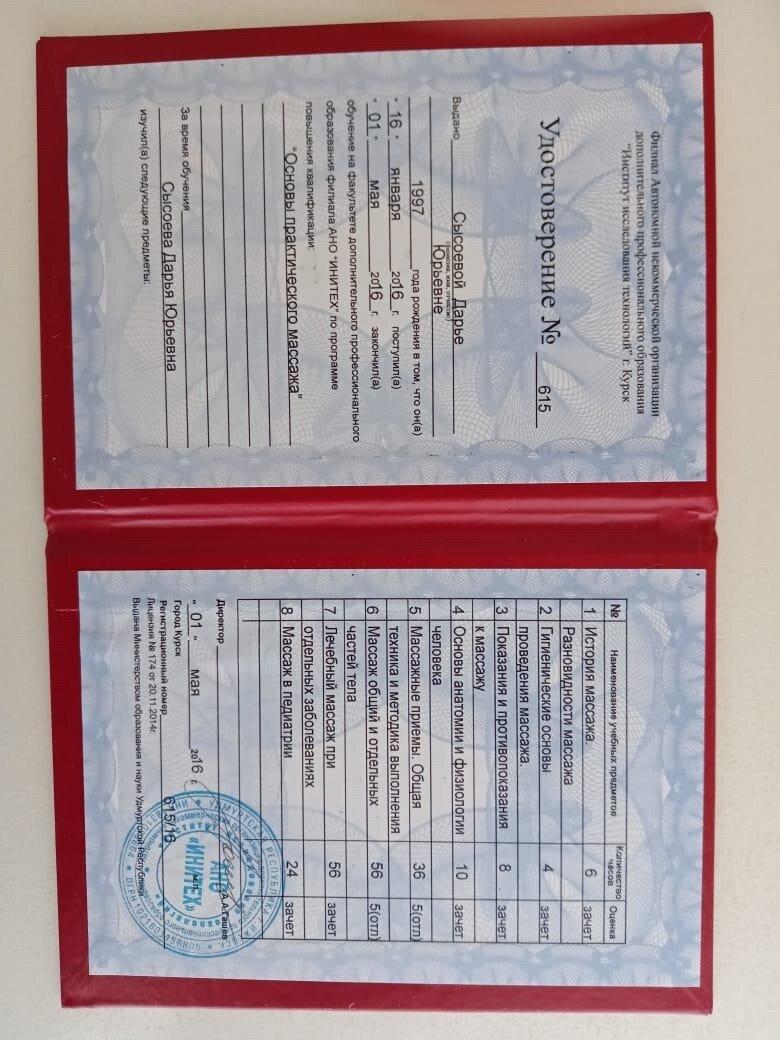 Филиал Автономной некоммерческой организации
дополнительного профессионального образования
"Институт исследования технологий" г. Курск
Удостоверение № 615
Выдано Сысоевой Дарье
(фамилия, имя, отчество)
Юрьевне
1997 года рождения в том, что он(а)
" 16 " января 2016 г. поступил(а)
" 01 " мая 2016 г. закончил(а)
обучение на факультете дополнительного профессионального
образования филиала АНО "ИНИТЕХ" по программе
повышения квалификации:
"Основы практического массажа"
За время обучения
Сысоева Дарья Юрьевна
изучил(а) следующие предметы:
№ Наименование учебных предметов Количество часов Оценка
1 История массажа. 6 зачет
Разновидности массажа
2 Гигиенические основы 4 зачет
проведения массажа.
3 Показания и противопоказания 8 зачет
к массажу
4 Основы анатомии и физиологии 10 зачет
человека
5 Массажные приемы. Общая 36 5(отл)
техника и методика выполнения
6 Массаж общий и отдельных 56 5(отл)
частей тела
7 Лечебный массаж при 56 зачет
отдельных заболеваниях
8 Массаж в педиатрии 24 зачет
Директор А.А.Гашев
" 01 " мая 2016 г.
Город Курск
Регистрационный номер 615/16
Лицензия № 174 от 20.11.2014г.
Выдана Министерством образования и науки Удмуртской Республики
УДМУРТСКАЯ РЕСПУБЛИКА
АНО
«ИНИТЕХ»